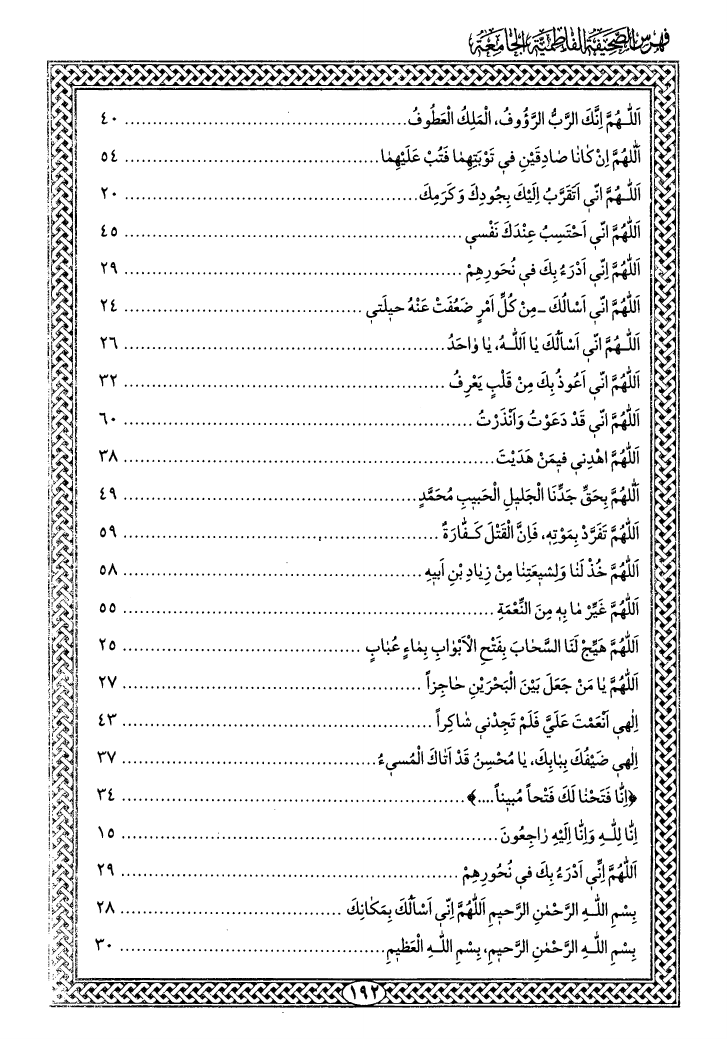 فهرس الصحيفة الفاطمية الجامعة
اَللّٰـهُمَّ اِنَّكَ الرَّبُّ الرَّؤُوفُ، الْمَلِكُ الْعَطُوفُ ........................................ ٤٠
اَللّٰهُمَّ اِنْ كٰانٰا صٰادِقَيْنِ فى تَوْبَتِهِمٰا فَتُبْ عَلَيْهِمٰا ........................................ ٥٤
اَللّٰـهُمَّ اِنّى اَتَقَرَّبُ اِلَيْكَ بِجُودِكَ وَ كَرَمِكَ ........................................ ٢٠
اَللّٰهُمَّ اِنّى اَحْتَسِبُ عِنْدَكَ نَفْسى ........................................ ٤٥
اَللّٰهُمَّ اِنّى اَدْرَءُ بِكَ فى نُحُورِهِمْ ........................................ ٢٩
اَللّٰهُمَّ اِنّى اَسْالُكَ ـ مِنْ كُلِّ اَمْرٍ ضَعُفَتْ عَنْهُ حيلَتى ........................................ ٢٤
اَللّٰـهُمَّ اِنّى اَسْأَلُكَ يٰا اَللّٰـهُ، يٰا وٰاحَدُ ........................................ ٢٦
اَللّٰهُمَّ اِنّى اَعُوذُ بِكَ مِنْ قَلْبٍ يَعْرِفُ ........................................ ٣٢
اَللّٰهُمَّ اِنّى قَدْ دَعَوْتُ وَاَنْذَرْتُ ........................................ ٦٠
اَللّٰهُمَّ اهْدِنى فيمَنْ هَدَيْتَ ........................................ ٣٨
اَللّٰهُمَّ بِحَقِّ جَدِّنَا الْجَليلِ الْحَبيبِ مُحَمَّدٍ ........................................ ٤٩
اَللّٰهُمَّ تَفَرَّدْ بِمَوْتِهِ، فَاِنَّ الْقَتْلَ كَـفّٰارَةٌ ........................................ ٥٩
اَللّٰهُمَّ خُذْ لَنٰا وَلِشيعَتِنٰا مِنْ زِيٰادِ بْنِ اَبيهِ ........................................ ٥٨
اَللّٰهُمَّ غَيِّرْ مٰا بِهِ مِنَ النِّعْمَةِ ........................................ ٥٥
اَللّٰهُمَّ هَيِّجْ لَنَا السَّحٰابَ بِفَتْحِ الْاَبْوٰابِ بِمٰاءٍ عُبٰابٍ ........................................ ٢٥
اَللّٰهُمَّ يٰا مَنْ جَعَلَ بَيْنَ الْبَحْرَيْنِ حٰاجِزاً ........................................ ٢٧
اِلٰهى اَنْعَمْتَ عَلَيَّ فَلَمْ تَجِدْنى شٰاكِراً ........................................ ٤٣
اِلٰهى ضَيْفُكَ بِبٰابِكَ، يٰا مُحْسِنُ قَدْ اَتٰاكَ الْمُسىءُ ........................................ ٣٧
﴿اِنّٰا فَتَحْنٰا لَكَ فَتْحاً مُبيناً....﴾ ........................................ ٣٤
اِنّٰا لِلّٰـهِ وَاِنّٰا اِلَيْهِ رٰاجِعُونَ ........................................ ١٥
اَللّٰهُمَّ اِنّى اَدْرَءُ بِكَ فى نُحُورِهِمْ ........................................ ٢٩
بِسْمِ اللّٰـهِ الرَّحْمٰنِ الرَّحيمِ اَللّٰهُمَّ اِنّى اَسْأَلُكَ بِمَكٰانِكَ ........................................ ٢٨
بِسْمِ اللّٰـهِ الرَّحْمٰنِ الرَّحيمِ، بِسْمِ اللّٰـهِ الْعَظيمِ ........................................ ٣٠
١٩٢